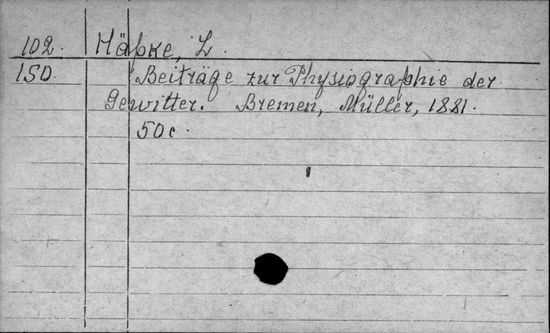 102. Häpke, L.
ISD. Beiträge zur Physiographie der
Gewitter. Bremen, Müller, 1881.
50c.